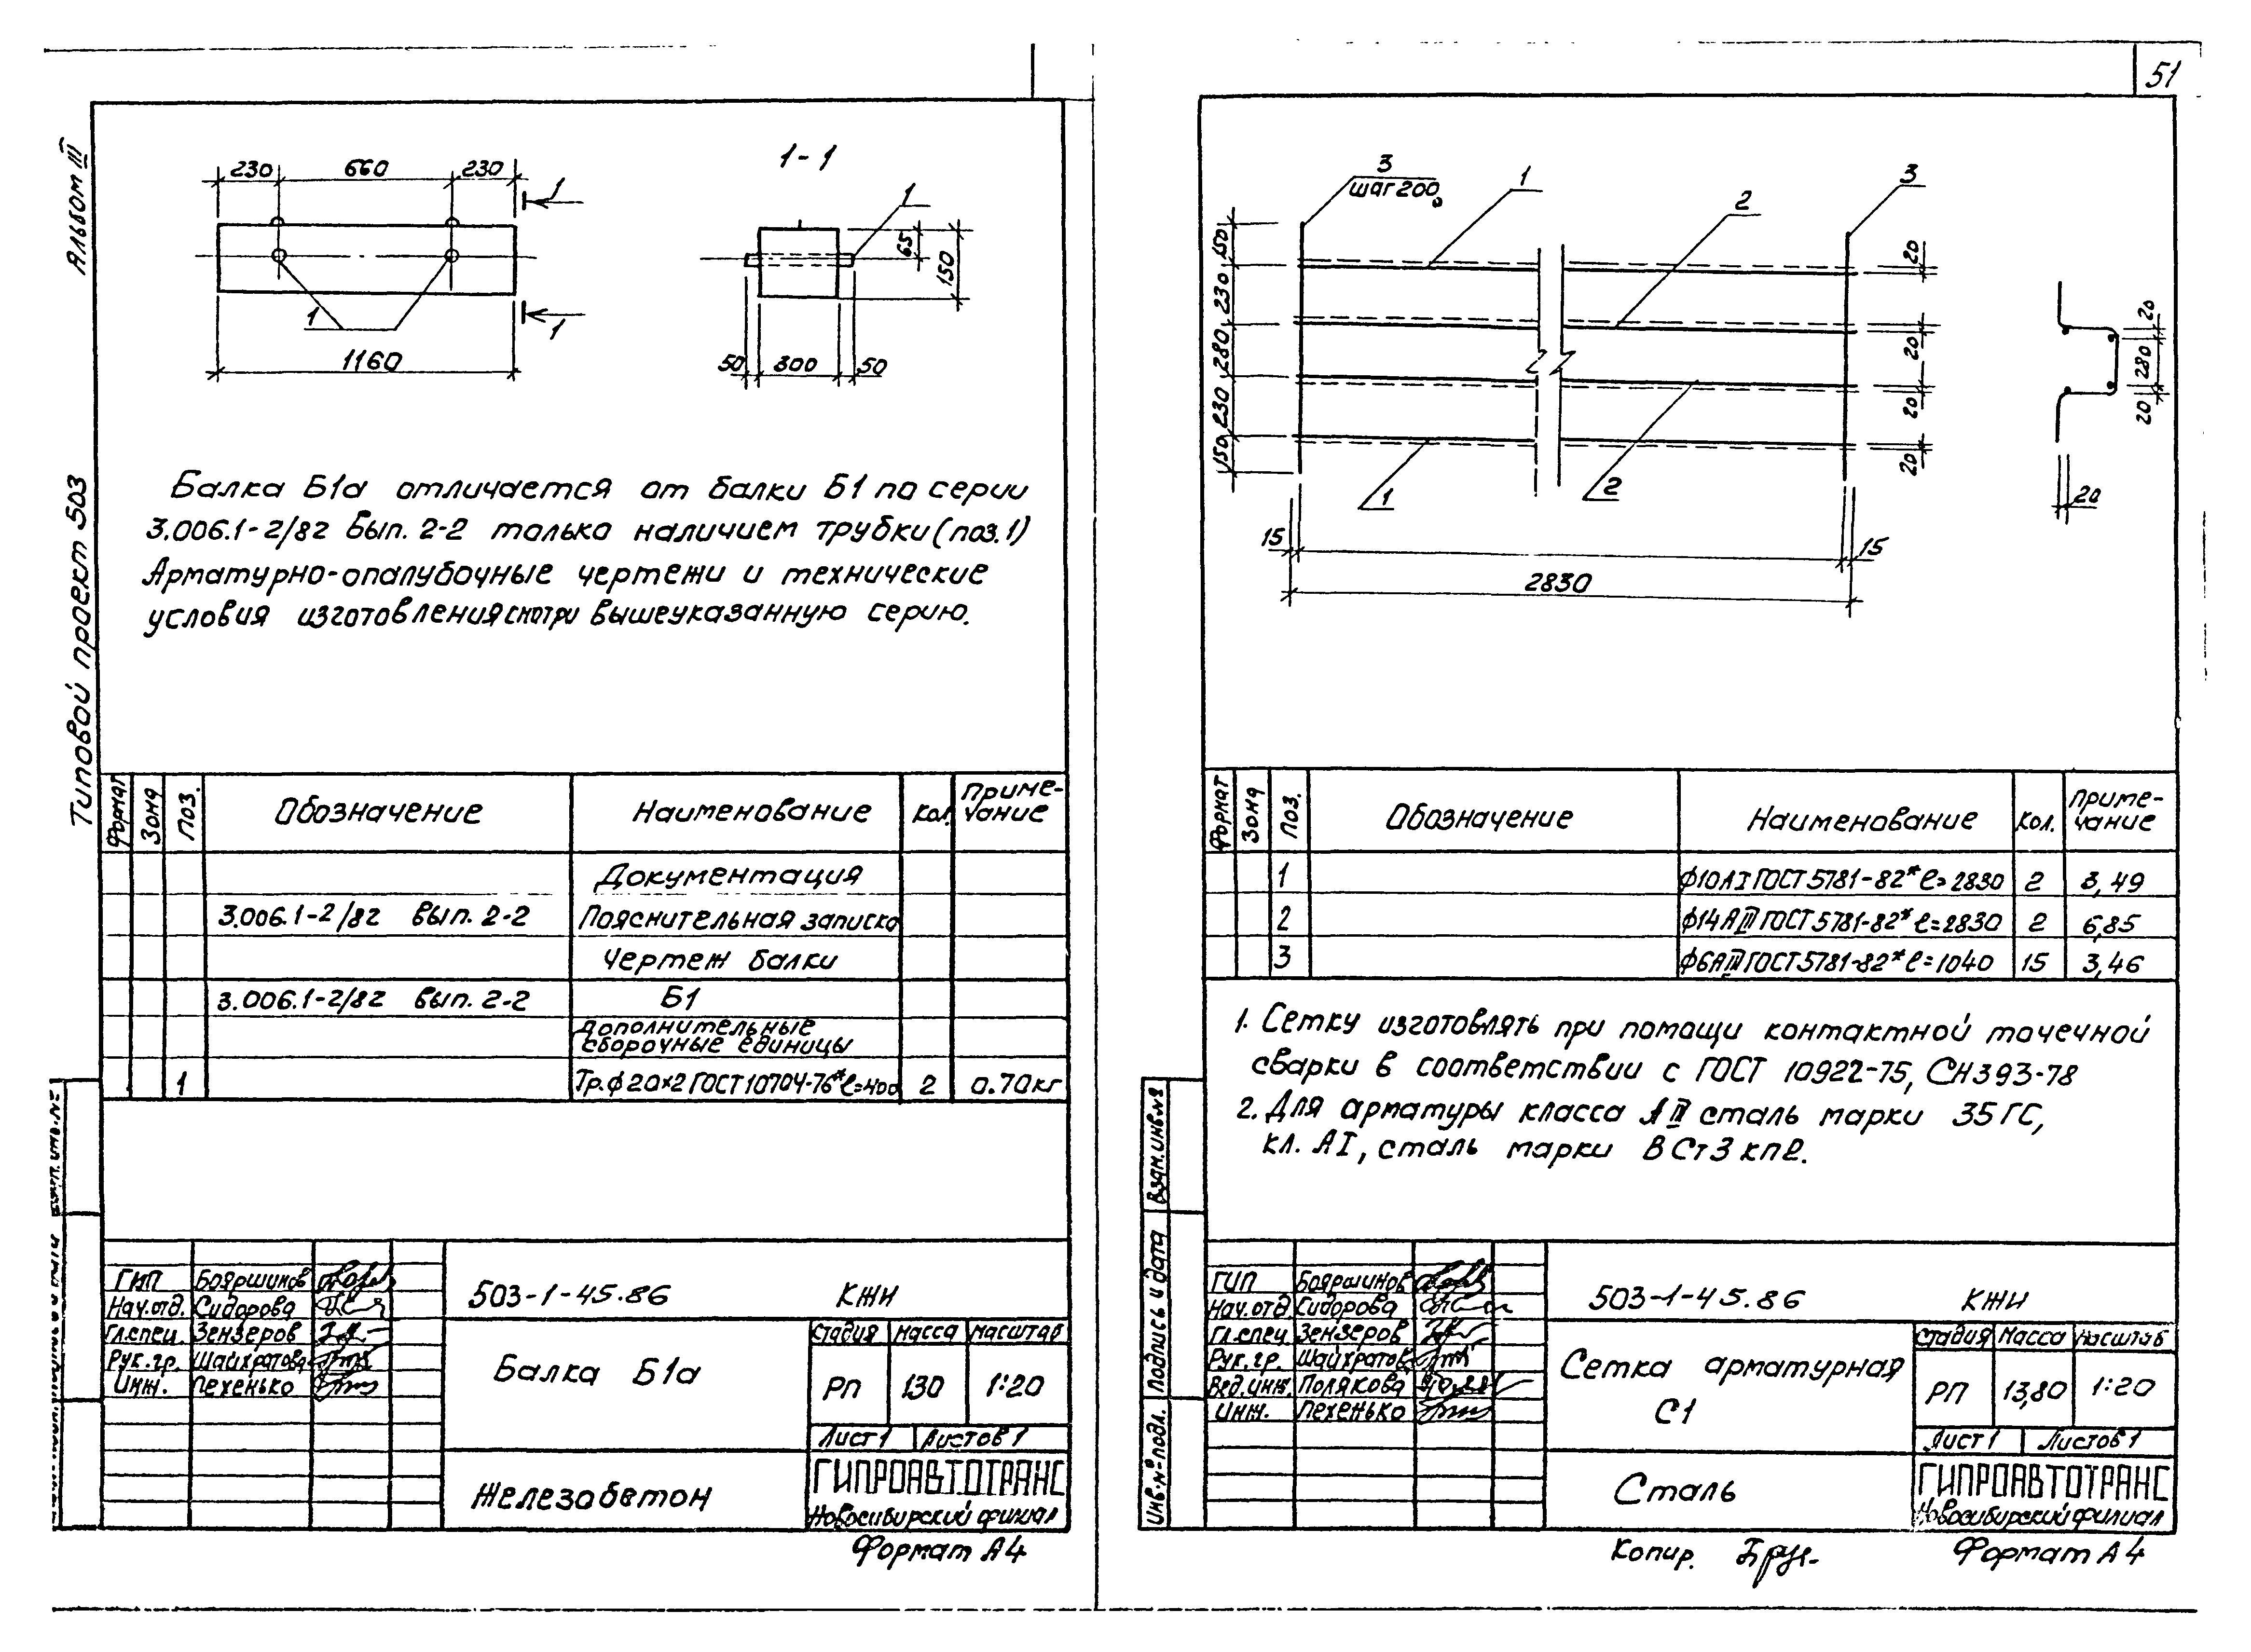 51
Альбом III
Типовой проект 503
230 660 230
1
1
1
1160
1-1
1
65
150
50 300 50
Балка Б1а отличается от балки Б1 по серии
3.006.1-2/82 Вып. 2-2 только наличием трубки (поз. 1)
Арматурно-опалубочные чертежи и технические
условия изготовления смотри вышеуказанную серию.
Формат Зона Поз. Обозначение Наименование Кол. Приме-
чание
Документация
3.006.1-2/82 вып. 2-2 Пояснительная записка
Чертеж балки
3.006.1-2/82 вып. 2-2 Б1
Дополнительные
сборочные единицы
1 Тр.ф20х2 ГОСТ 10704-76* ℓ=400 2 0.70кг
ГИП Бояршинов
Нач.отд. Сидорова
Гл.спец. Зензеров
Рук.гр. Шайхратова
Инж. Пехенько
503-1-45.86 КЖИ
Балка Б1а
Стадия Масса Масштаб
РП 130 1:20
Лист 1 Листов 1
Железобетон
ГИПРОАВТОТРАНС
Новосибирский филиал
Формат А4
3
шаг 200
1
2
3
150 230 280 230 150
20 20 20 20
1
2
15 15
2830
20
280
20
20
Формат Зона Поз. Обозначение Наименование Кол. Приме-
чание
1 ф10АI ГОСТ 5781-82* ℓ=2830 2 3,49
2 ф14АIII ГОСТ 5781-82* ℓ=2830 2 6,85
3 ф6АIII ГОСТ 5781-82* ℓ=1040 15 3,46
1. Сетку изготовлять при помощи контактной точечной
сварки в соответствии с ГОСТ 10922-75, СН 393-78
2. Для арматуры класса АIII сталь марки 35ГС,
кл. АI, сталь марки ВСт3кп2.
Взам.инв.№
Подпись и дата
Инв.№ подл.
ГИП Бояршинов
Нач.отд. Сидорова
Гл.спец. Зензеров
Рук.гр. Шайхратова
Вед.инж. Полякова
Инж. Пехенько
503-1-45.86 КЖИ
Сетка арматурная
С1
Стадия Масса Масштаб
РП 13,80 1:20
Лист 1 Листов 1
Сталь
ГИПРОАВТОТРАНС
Новосибирский филиал
Копир.
Формат А4